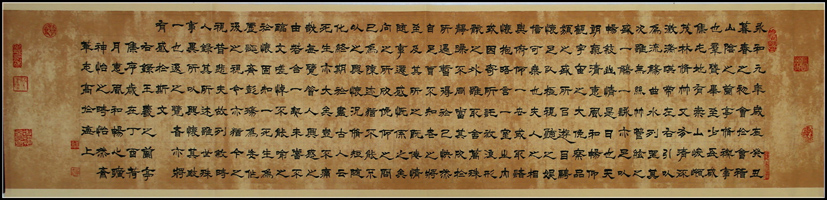 永和九年歲在癸丑
暮春之初會於會稽
山陰之蘭亭脩禊事
也羣賢畢至少長咸
集此地有崇山峻領
茂林脩竹又有清流
激湍映帶左右引以
為流觴曲水列坐其
次雖無絲竹管弦之
盛一觴一詠亦足以
暢敘幽情是日也天
朗氣清惠風和暢仰
觀宇宙之大俯察品
類之盛所以遊目騁
懷足以極視聽之娛
信可樂也夫人之相
與俯仰一世或取諸
懷抱悟言一室之內
或因寄所託放浪形
骸之外雖取舍萬殊
靜躁不同當其欣於
所遇暫得於己快然
自足曾不知老之將
至及其所之既倦情
隨事遷感慨係之矣
向之所欣俛仰之間
已為陳迹猶不能不
以之興懷況脩短隨
化終期於盡古人云
死生亦大矣豈不痛
哉每覽昔人興感之
由若合一契未嘗不
臨文嗟悼不能喻之
於懷固知一死生為
虛誕齊彭殤為妄作
後之視今亦猶今之
視昔悲夫故列敘時
人錄其所述雖世殊
事異所以興懷其致
一也後之覽者亦將
有感於斯文
右錄王羲之蘭亭
集序歲在丁酉荷
月惠風和暢心
神怡之時恭書
志高於上